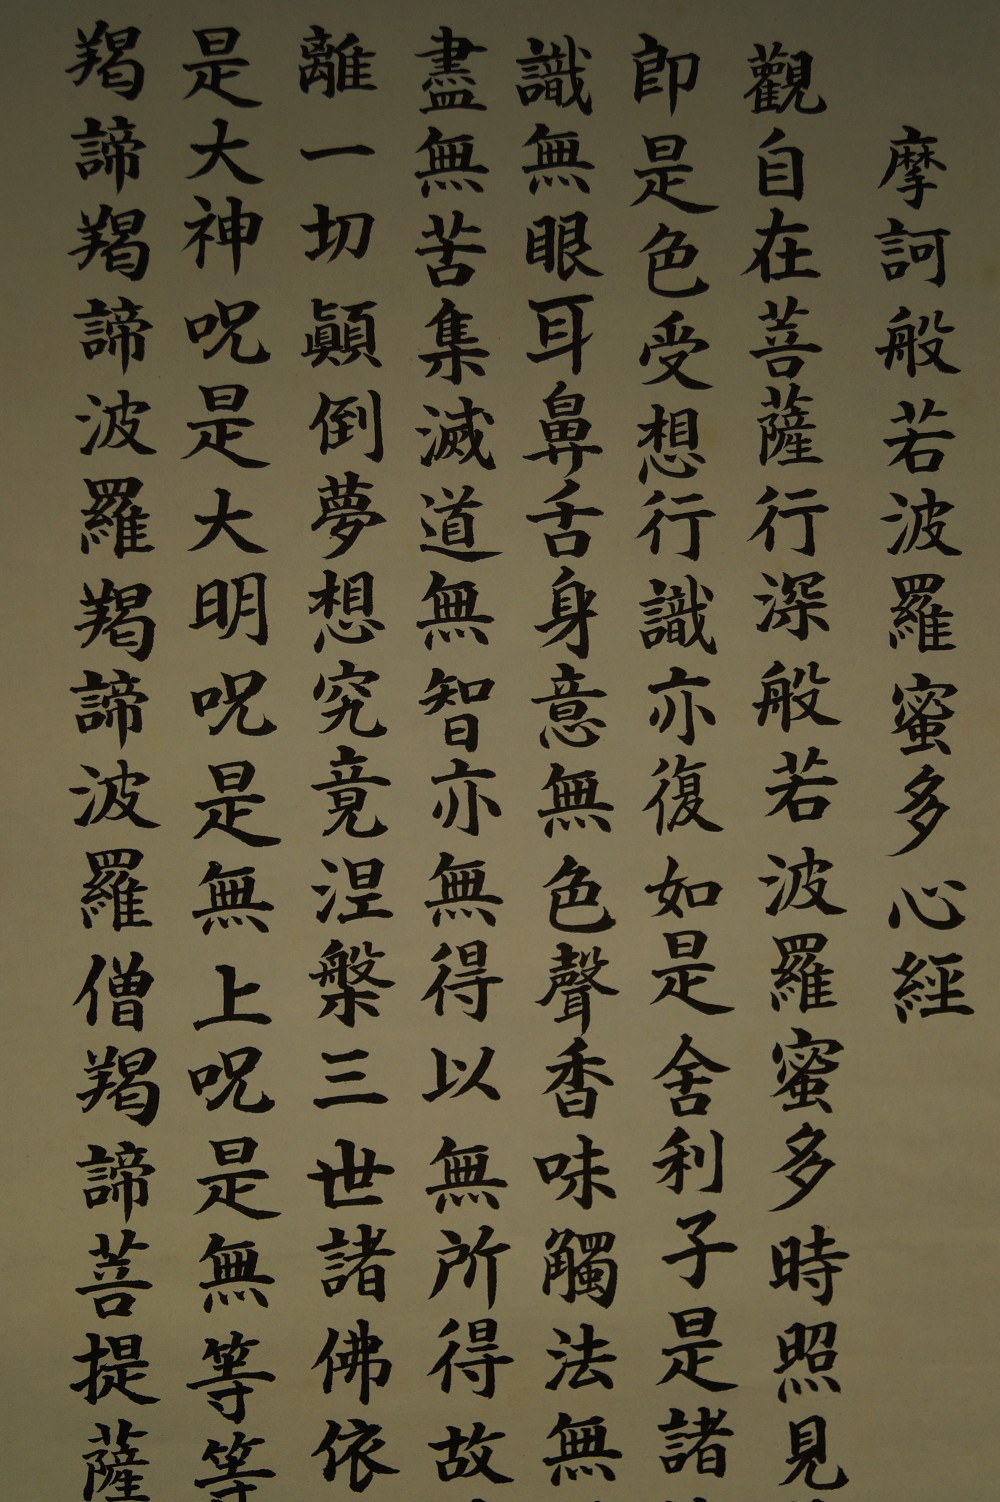 摩訶般若波羅蜜多心經
觀自在菩薩行深般若波羅蜜多時照見
即是色受想行識亦復如是舍利子是諸
識無眼耳鼻舌身意無色聲香味觸法無
盡無苦集滅道無智亦無得以無所得故
離一切顛倒夢想究竟涅槃三世諸佛依
是大神呪是大明呪是無上呪是無等等
羯諦羯諦波羅羯諦波羅僧羯諦菩提薩